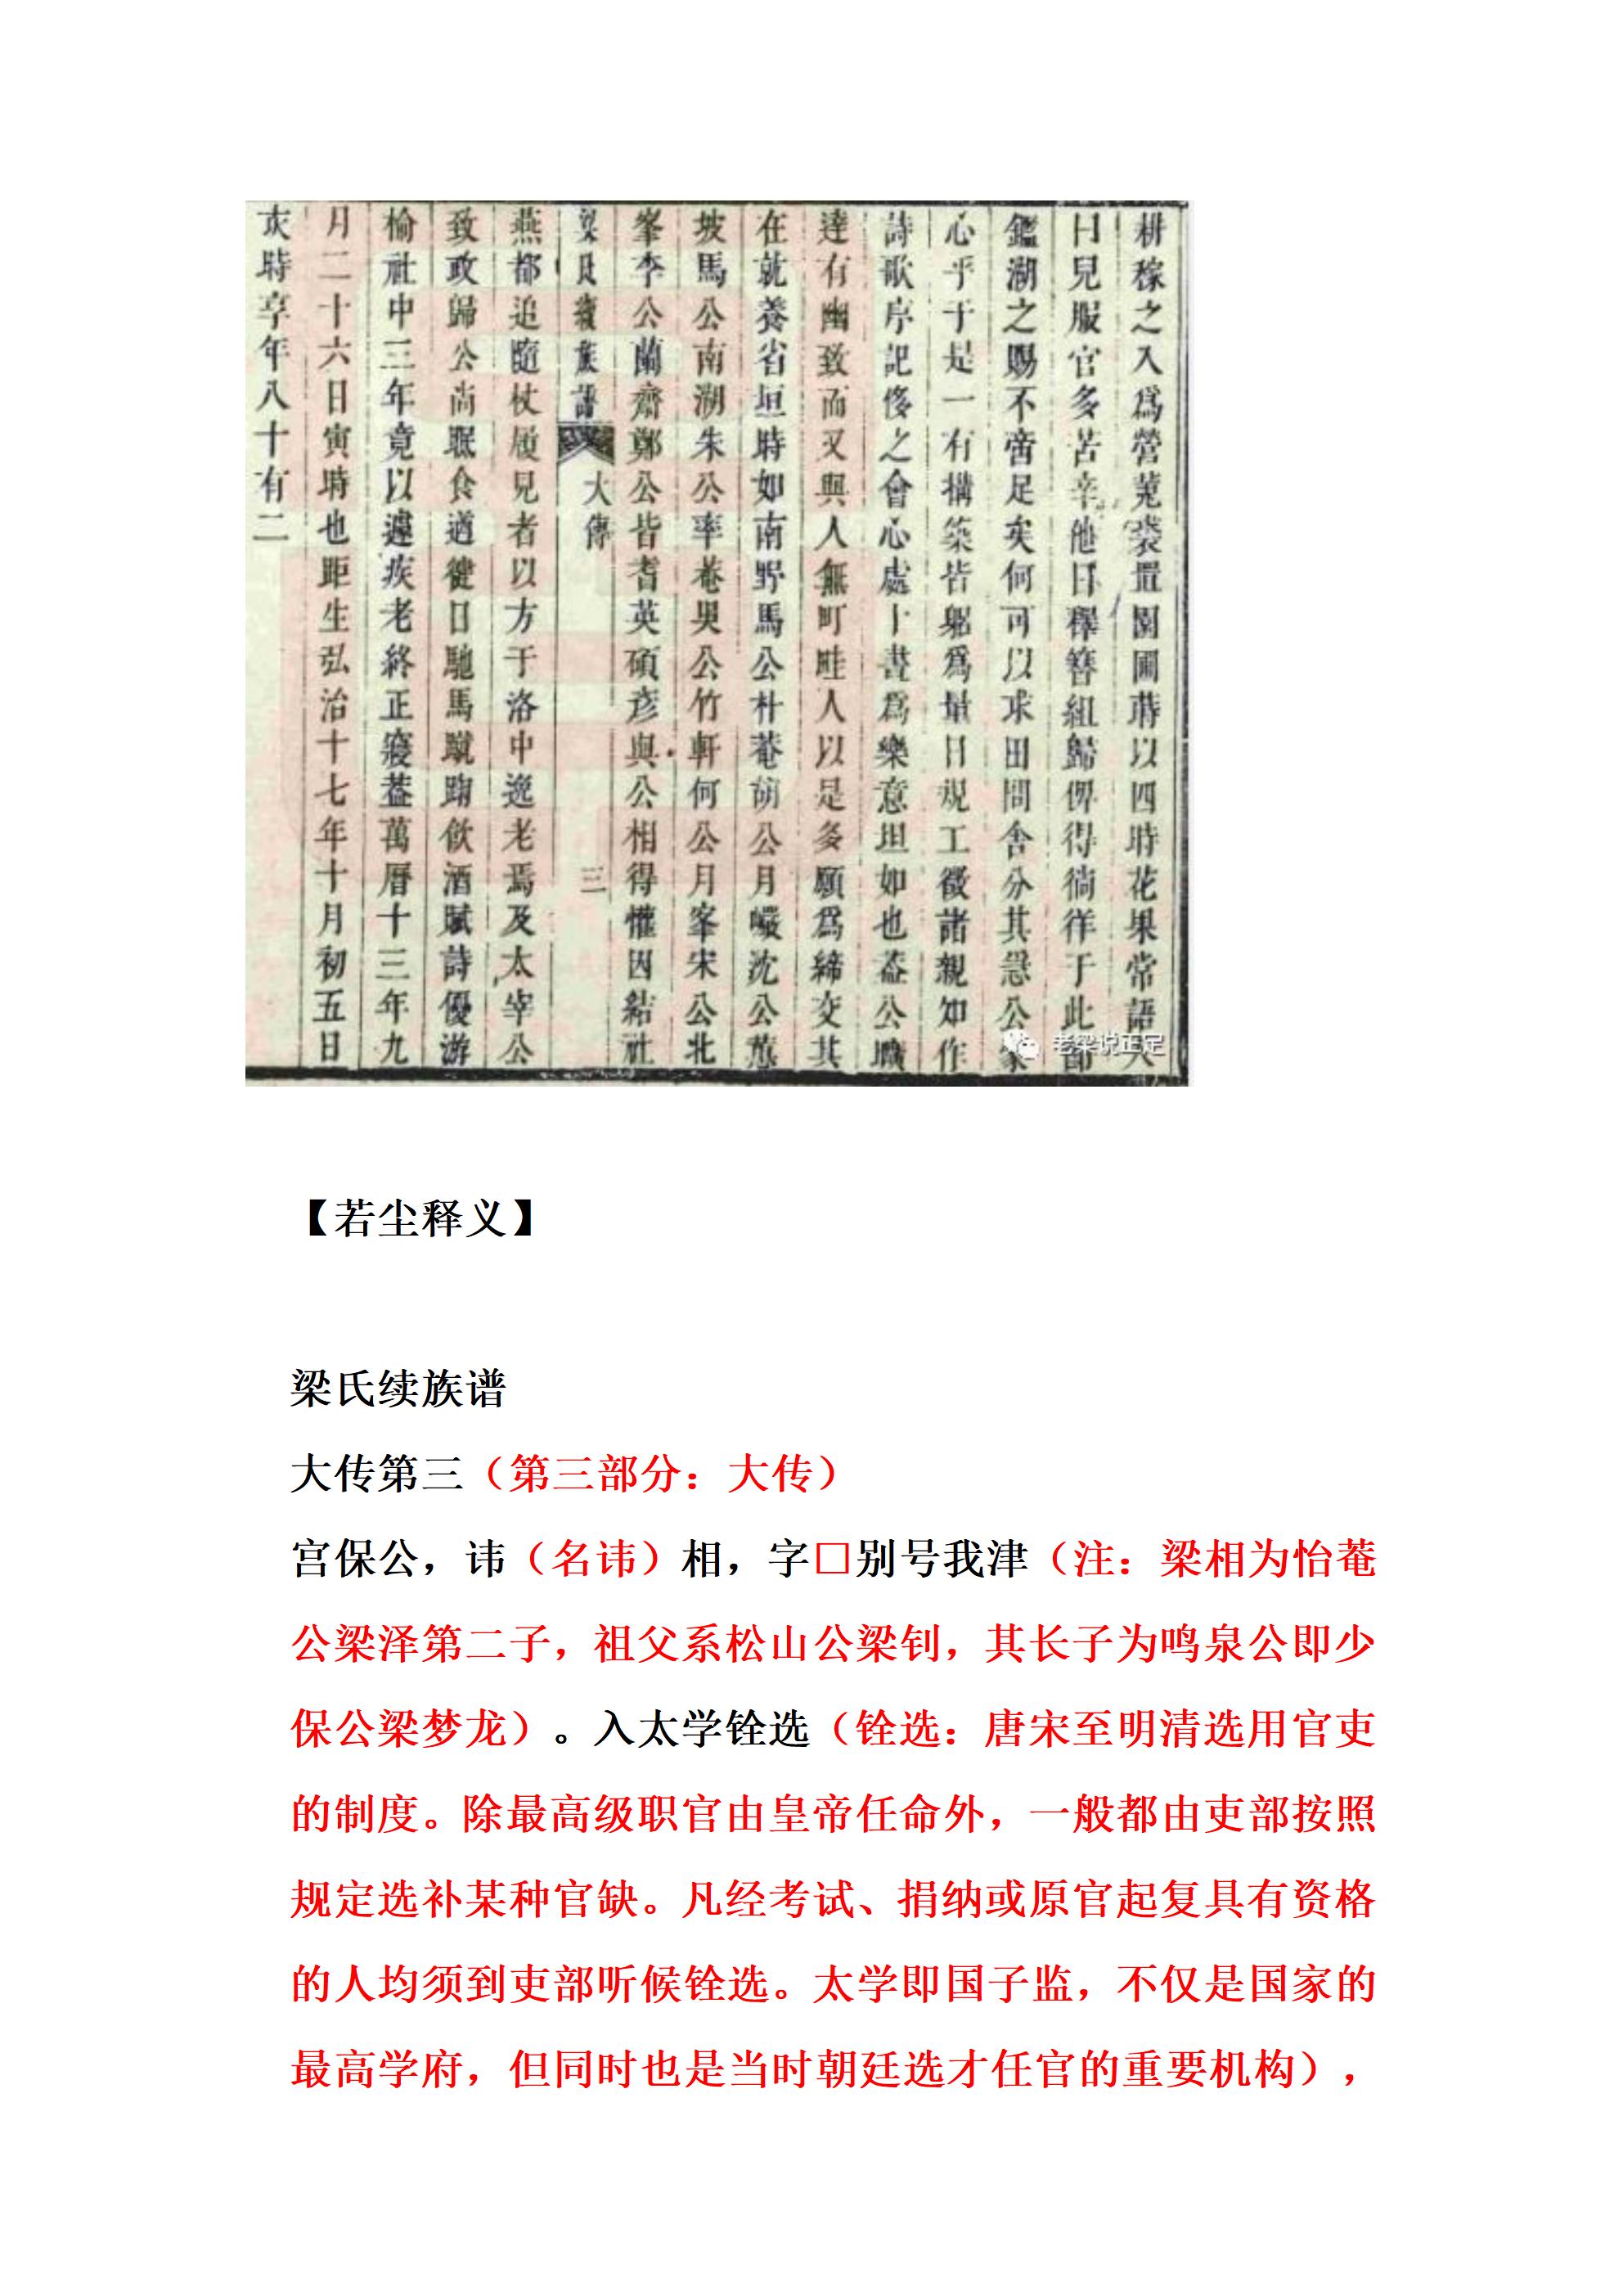 耕稼之入爲營菟裘置園圃蒔以四時花果常語人
曰兒服官多苦辛他日釋簪組歸俾得徜徉于此卽
鑑湖之賜不啻足矣何可以求田問舍分其慮公家
心乎于是一有搆築皆躬爲量日規工徵諸親知作
詩歌序記侈之會心處十書爲樂意坦如也葢公曠
達有幽致而又與人無町畦人以是多願爲締交其
在就養省垣時如南野馬公朴菴胡公月巖沈公蒽
坡馬公南湖朱公率菴吳公竹軒何公月峯宋公北
峯李公蘭齋鄭公皆耆英碩彥與公相得懽因結社
梁氏續族譜 大傳 三
燕都追隨杖履見者以方于洛中逸老焉及太宰公
致政歸公尚眠食遒健日馳馬蹴踘飲酒賦詩優游
榆社中三年竟以遘疾老終正寢葢萬曆十三年九
月二十六日寅時也距生弘治十七年十月初五日
亥時享年八十有二
老梁说正定
【若尘释义】
梁氏续族谱
大传第三（第三部分：大传）
宫保公，讳（名讳）相，字□别号我津（注：梁相为怡菴
公梁泽第二子，祖父系松山公梁钊，其长子为鸣泉公即少
保公梁梦龙）。入太学铨选（铨选：唐宋至明清选用官吏
的制度。除最高级职官由皇帝任命外，一般都由吏部按照
规定选补某种官缺。凡经考试、捐纳或原官起复具有资格
的人均须到吏部听候铨选。太学即国子监，不仅是国家的
最高学府，但同时也是当时朝廷选才任官的重要机构），